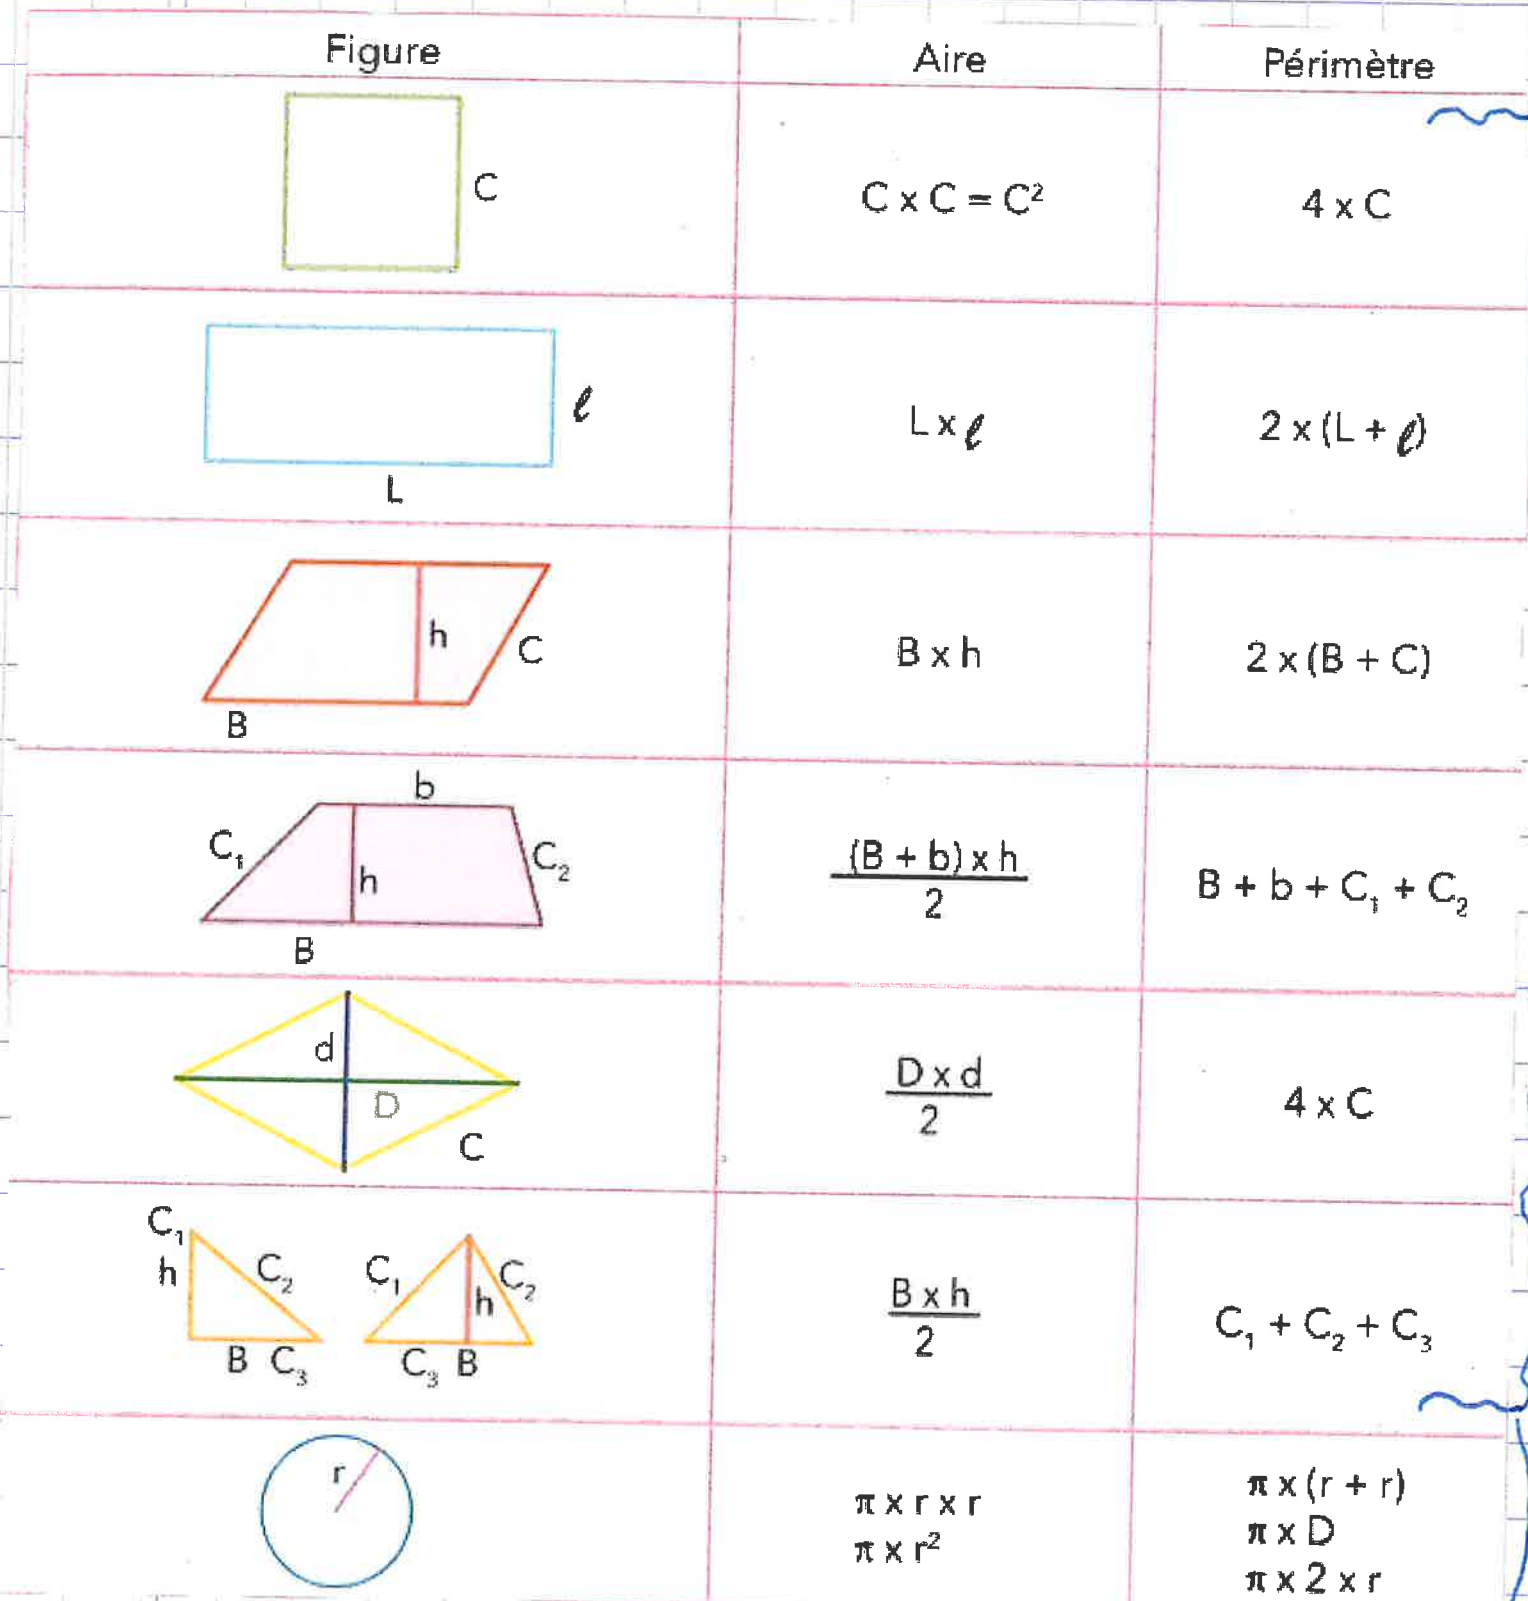 Figure Aire Périmètre
C
C x C = C²
4 x C
ℓ
L
L x ℓ
2 x (L + ℓ)
h
C
B
B x h
2 x (B + C)
b
C₁
C₂
h
B
(B + b) x h
2
B + b + C₁ + C₂
d
D
C
D x d
2
4 x C
C₁
h
C₂
B C₃
C₁
C₂
h
C₃ B
B x h
2
C₁ + C₂ + C₃
r
π x r x r
π x r²
π x (r + r)
π x D
π x 2 x r